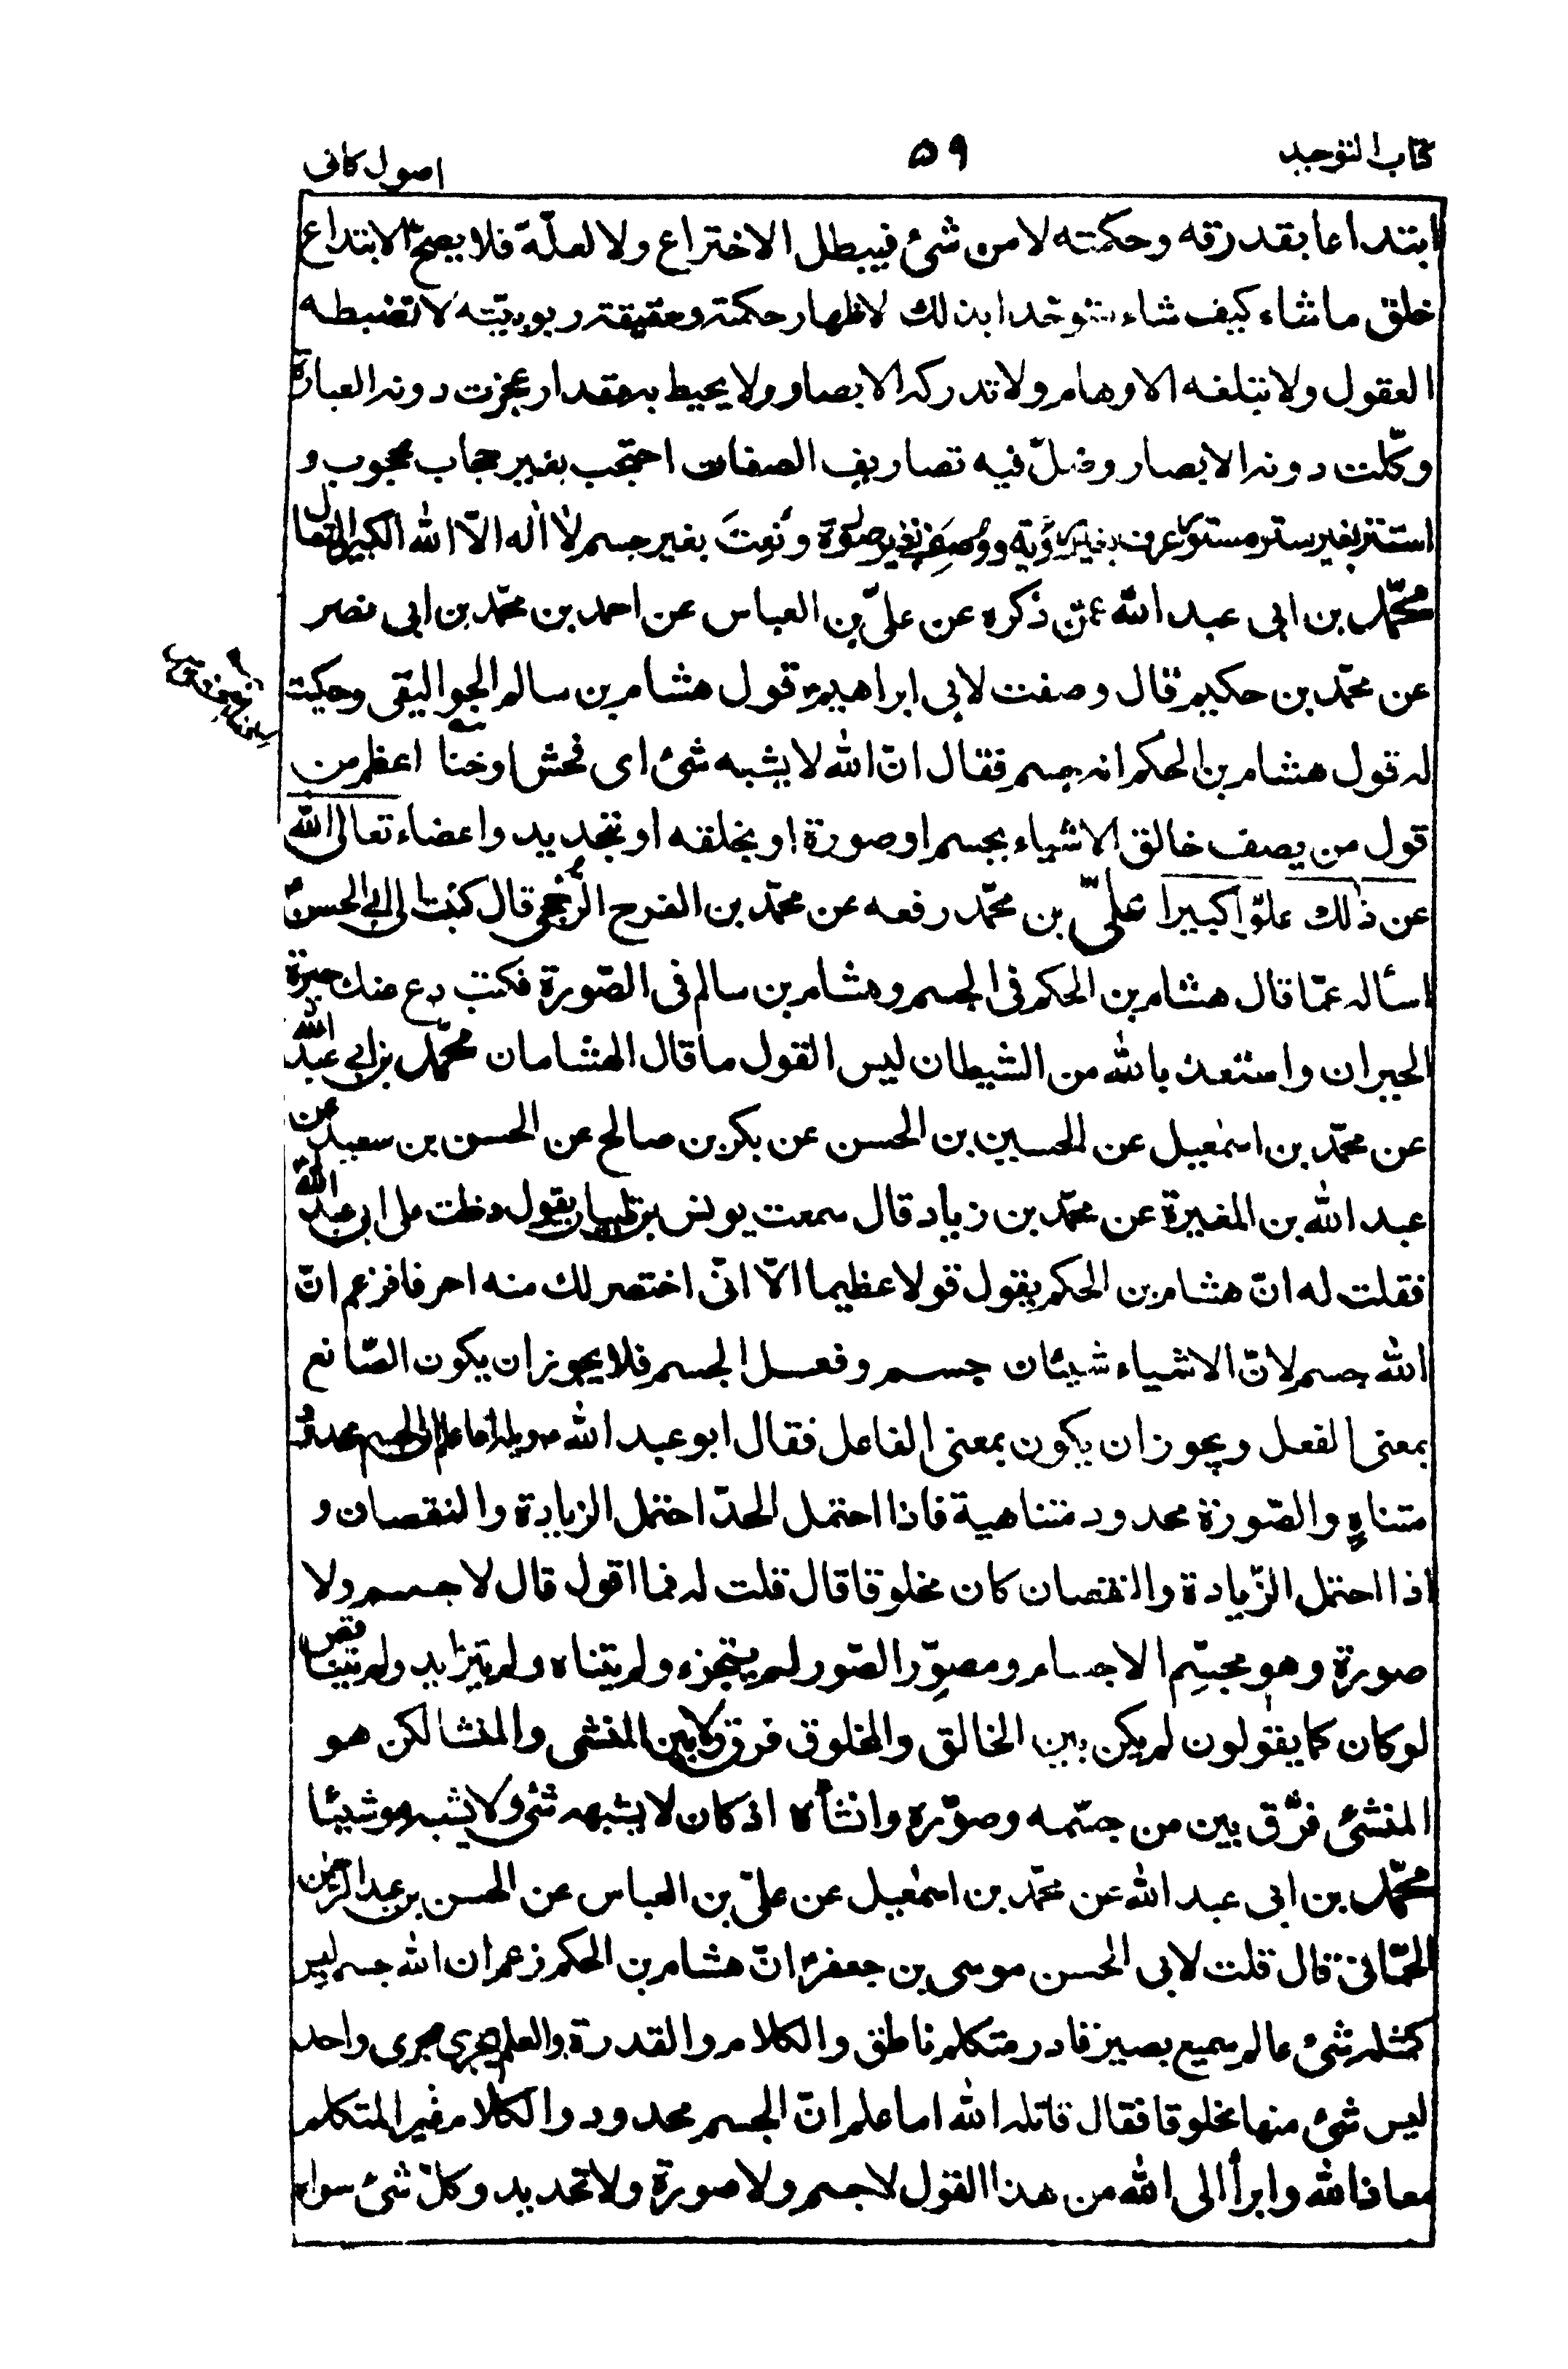 كتاب التوحيد
۵۹
اصول كافى
ابتداعا بقدرته وحكمته لا من شئ فيبطل الاختراع ولا لعلّة فلا يصحّ الابتداع
خلق ما شاء كيف شاء متوحّدا بذلك لاظهار حكمته وحقيقة ربوبيّته لا تضبطه
العقول ولا تبلغه الاوهام ولا تدركه الابصار ولا يحيط به مقدار عجزت دونه العبارة
وكلّت دونه الابصار وضلّ فيه تصاريف الصفات احتجب بغير حجاب محجوب و
استتر بغير ستر مستور عرف بغير رؤية ووُصِف بغير صورة ونُعِتَ بغير جسم لا اله الّا الله الكبير المتعال
محمّد بن ابى عبد الله عمّن ذكره عن علىّ بن العباس عن احمد بن محمّد بن ابى نصر
عن محمّد بن حكيم قال وصفت لابى ابراهيم ع قول هشام بن سالم الجواليقى وحكيت
له قول هشام بن الحكم انه جسم فقال انّ الله لا يشبه شئ اى فحش او خنا اعظم من
قول من يصف خالق الاشياء بجسم او صورة او بخلقه او بتحديد واعضاء تعالى الله
عن ذلك علوّا كبيرا علىّ بن محمّد رفعه عن محمّد بن الفرج الرُّخَّجى قال كتبت الى ابى الحسن ع
اسأله عمّا قال هشام بن الحكم فى الجسم وهشام بن سالم فى الصّورة فكتب دع عنك حيرة
الحيران واستعذ بالله من الشيطان ليس القول ما قال الهشامان محمّد بن ابى عبد الله
عن محمّد بن اسمعيل عن الحسين بن الحسن عن بكر بن صالح عن الحسن بن سعيد عن
عبد الله بن المغيرة عن محمّد بن زياد قال سمعت يونس بن ظبيان يقول دخلت على ابى عبد الله ع
فقلت له انّ هشام بن الحكم يقول قولا عظيما الّا انّى اختصر لك منه احرفا فزعم انّ
الله جسم لانّ الاشياء شيئان جسم وفعل الجسم فلا يجوز ان يكون الصّانع
بمعنى الفعل ويجوز ان يكون بمعنى الفاعل فقال ابو عبد الله ع ويله اما علم انّ الجسم محدود
متناهٍ والصّورة محدود متناهية فاذا احتمل الحدّ احتمل الزيادة والنقصان و
اذا احتمل الزّيادة والنقصان كان مخلوقا قال قلت له فما اقول قال لا جسم ولا
صورة وهو مجسّم الاجسام ومصوّر الصّور لم يتجزء ولم يتناه ولم يتزايد ولم يتناقص
لو كان كما يقولون لم يكن بين الخالق والمخلوق فرق ولا بين المنشئ والمنشا لكن هو
المنشئ فرّق بين من جسّمه وصوّره وانشأه اذ كان لا يشبهه شئ ولا يشبه هو شيئا
محمّد بن ابى عبد الله عن محمّد بن اسمعيل عن علىّ بن العباس عن الحسن بن عبد الرحمن
الحمّانى قال قلت لابى الحسن موسى بن جعفر ع انّ هشام بن الحكم زعم ان الله جسم ليس
كمثله شئ عالم سميع بصير قادر متكلم ناطق والكلام والقدرة والعلم يجرى مجرى واحد
ليس شئ منها مخلوقا فقال قاتله الله اما علم انّ الجسم محدود والكلام غير المتكلم
معاذ الله وابرأ الى الله من هذا القول لا جسم ولا صورة ولا تحديد وكلّ شئ سواه